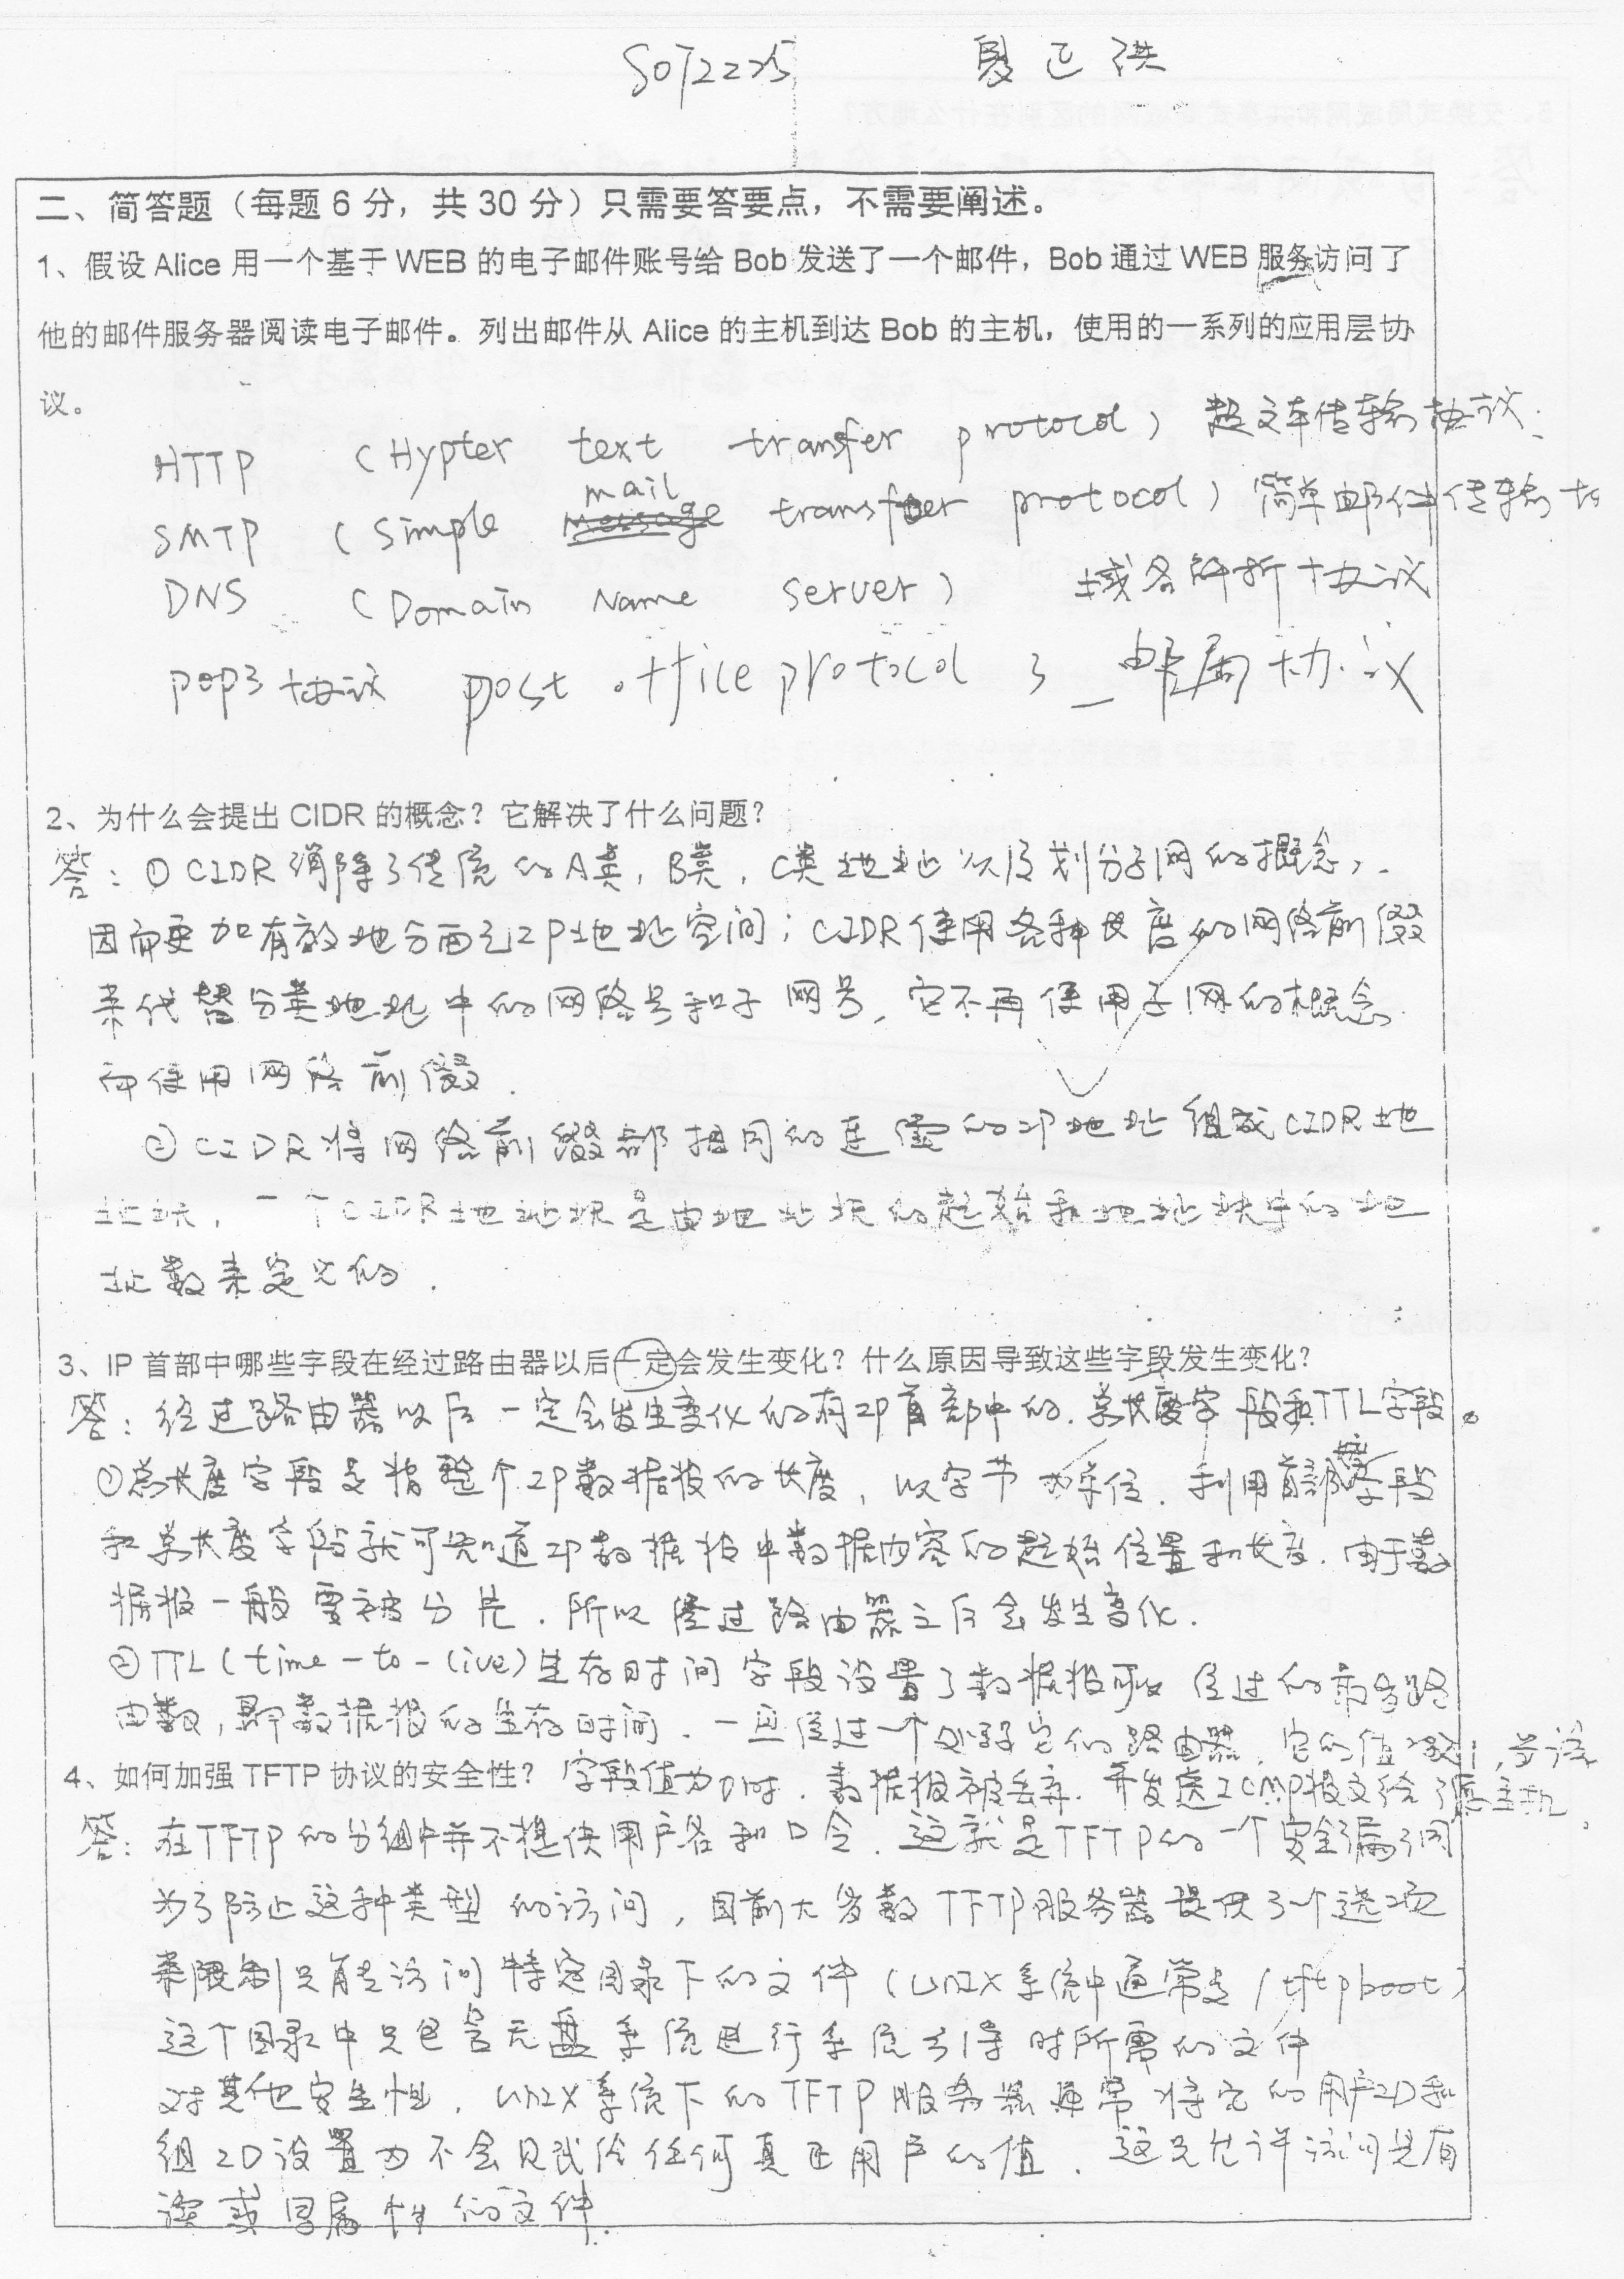 S072225 夏正洪
二、简答题（每题 6 分，共 30 分）只需要答要点，不需要阐述。
1、假设 Alice 用一个基于 WEB 的电子邮件账号给 Bob 发送了一个邮件，Bob 通过 WEB 服务访问了
他的邮件服务器阅读电子邮件。列出邮件从 Alice 的主机到达 Bob 的主机，使用的一系列的应用层协
议。
HTTP （Hypter text transfer protocol） 超文本传输协议.
SMTP （Simple mail transfer protocol） 简单邮件传输协
DNS （Domain Name server） 域名解析协议
pop3协议 post office protocol 3 邮局协议
2、为什么会提出 CIDR 的概念？它解决了什么问题？
答：① CIDR 消除了传统的A类，B类，C类地址以及划分子网的概念，
因而更加有效地分配IP地址空间；CIDR使用各种长度的网络前缀
来代替分类地址中的网络号和子网号，它不再使用子网的概念
而使用网络前缀．
② CIDR将网络前缀都相同的连续的IP地址组成CIDR地
址块，一个CIDR地址块是由地址块的起始和地址块中的地
址数来定义的．
3、IP 首部中哪些字段在经过路由器以后一定会发生变化？什么原因导致这些字段发生变化？
答：经过路由器以后一定会发生变化的有IP首部中的．总长度字段和TTL字段。
①总长度字段是指整个IP数据报的长度，以字节为单位．利用首部长度字段
和总长度字段就可知道IP数据报中数据内容的起始位置和长度．由于数
据报一般要被分片．所以经过路由器之后会发生变化．
②TTL（time-to-live）生存时间字段设置了数据报可以经过的最多路
由数，即数据报的生存时间．一旦经过一个处理它的路由器，它的值减1，当该
4、如何加强 TFTP 协议的安全性？ 字段值为0时．数据报被丢弃．并发送ICMP报文给源主机。
答：在TFTP的分组中并不提供用户名和口令．这就是TFTP的一个安全漏洞
为了防止这种类型的访问，目前大多数TFTP服务器提供了一个选项
来限制只能访问特定目录下的文件（UNIX系统中通常是/tftpboot）
这个目录中只包含无盘系统进行系统引导时所需的文件
对其他安全性，UNIX系统下的TFTP服务器通常将它的用户ID和
组ID设置为不会赋给任何真正用户的值．这只允许访问具有
读或写属性的文件．